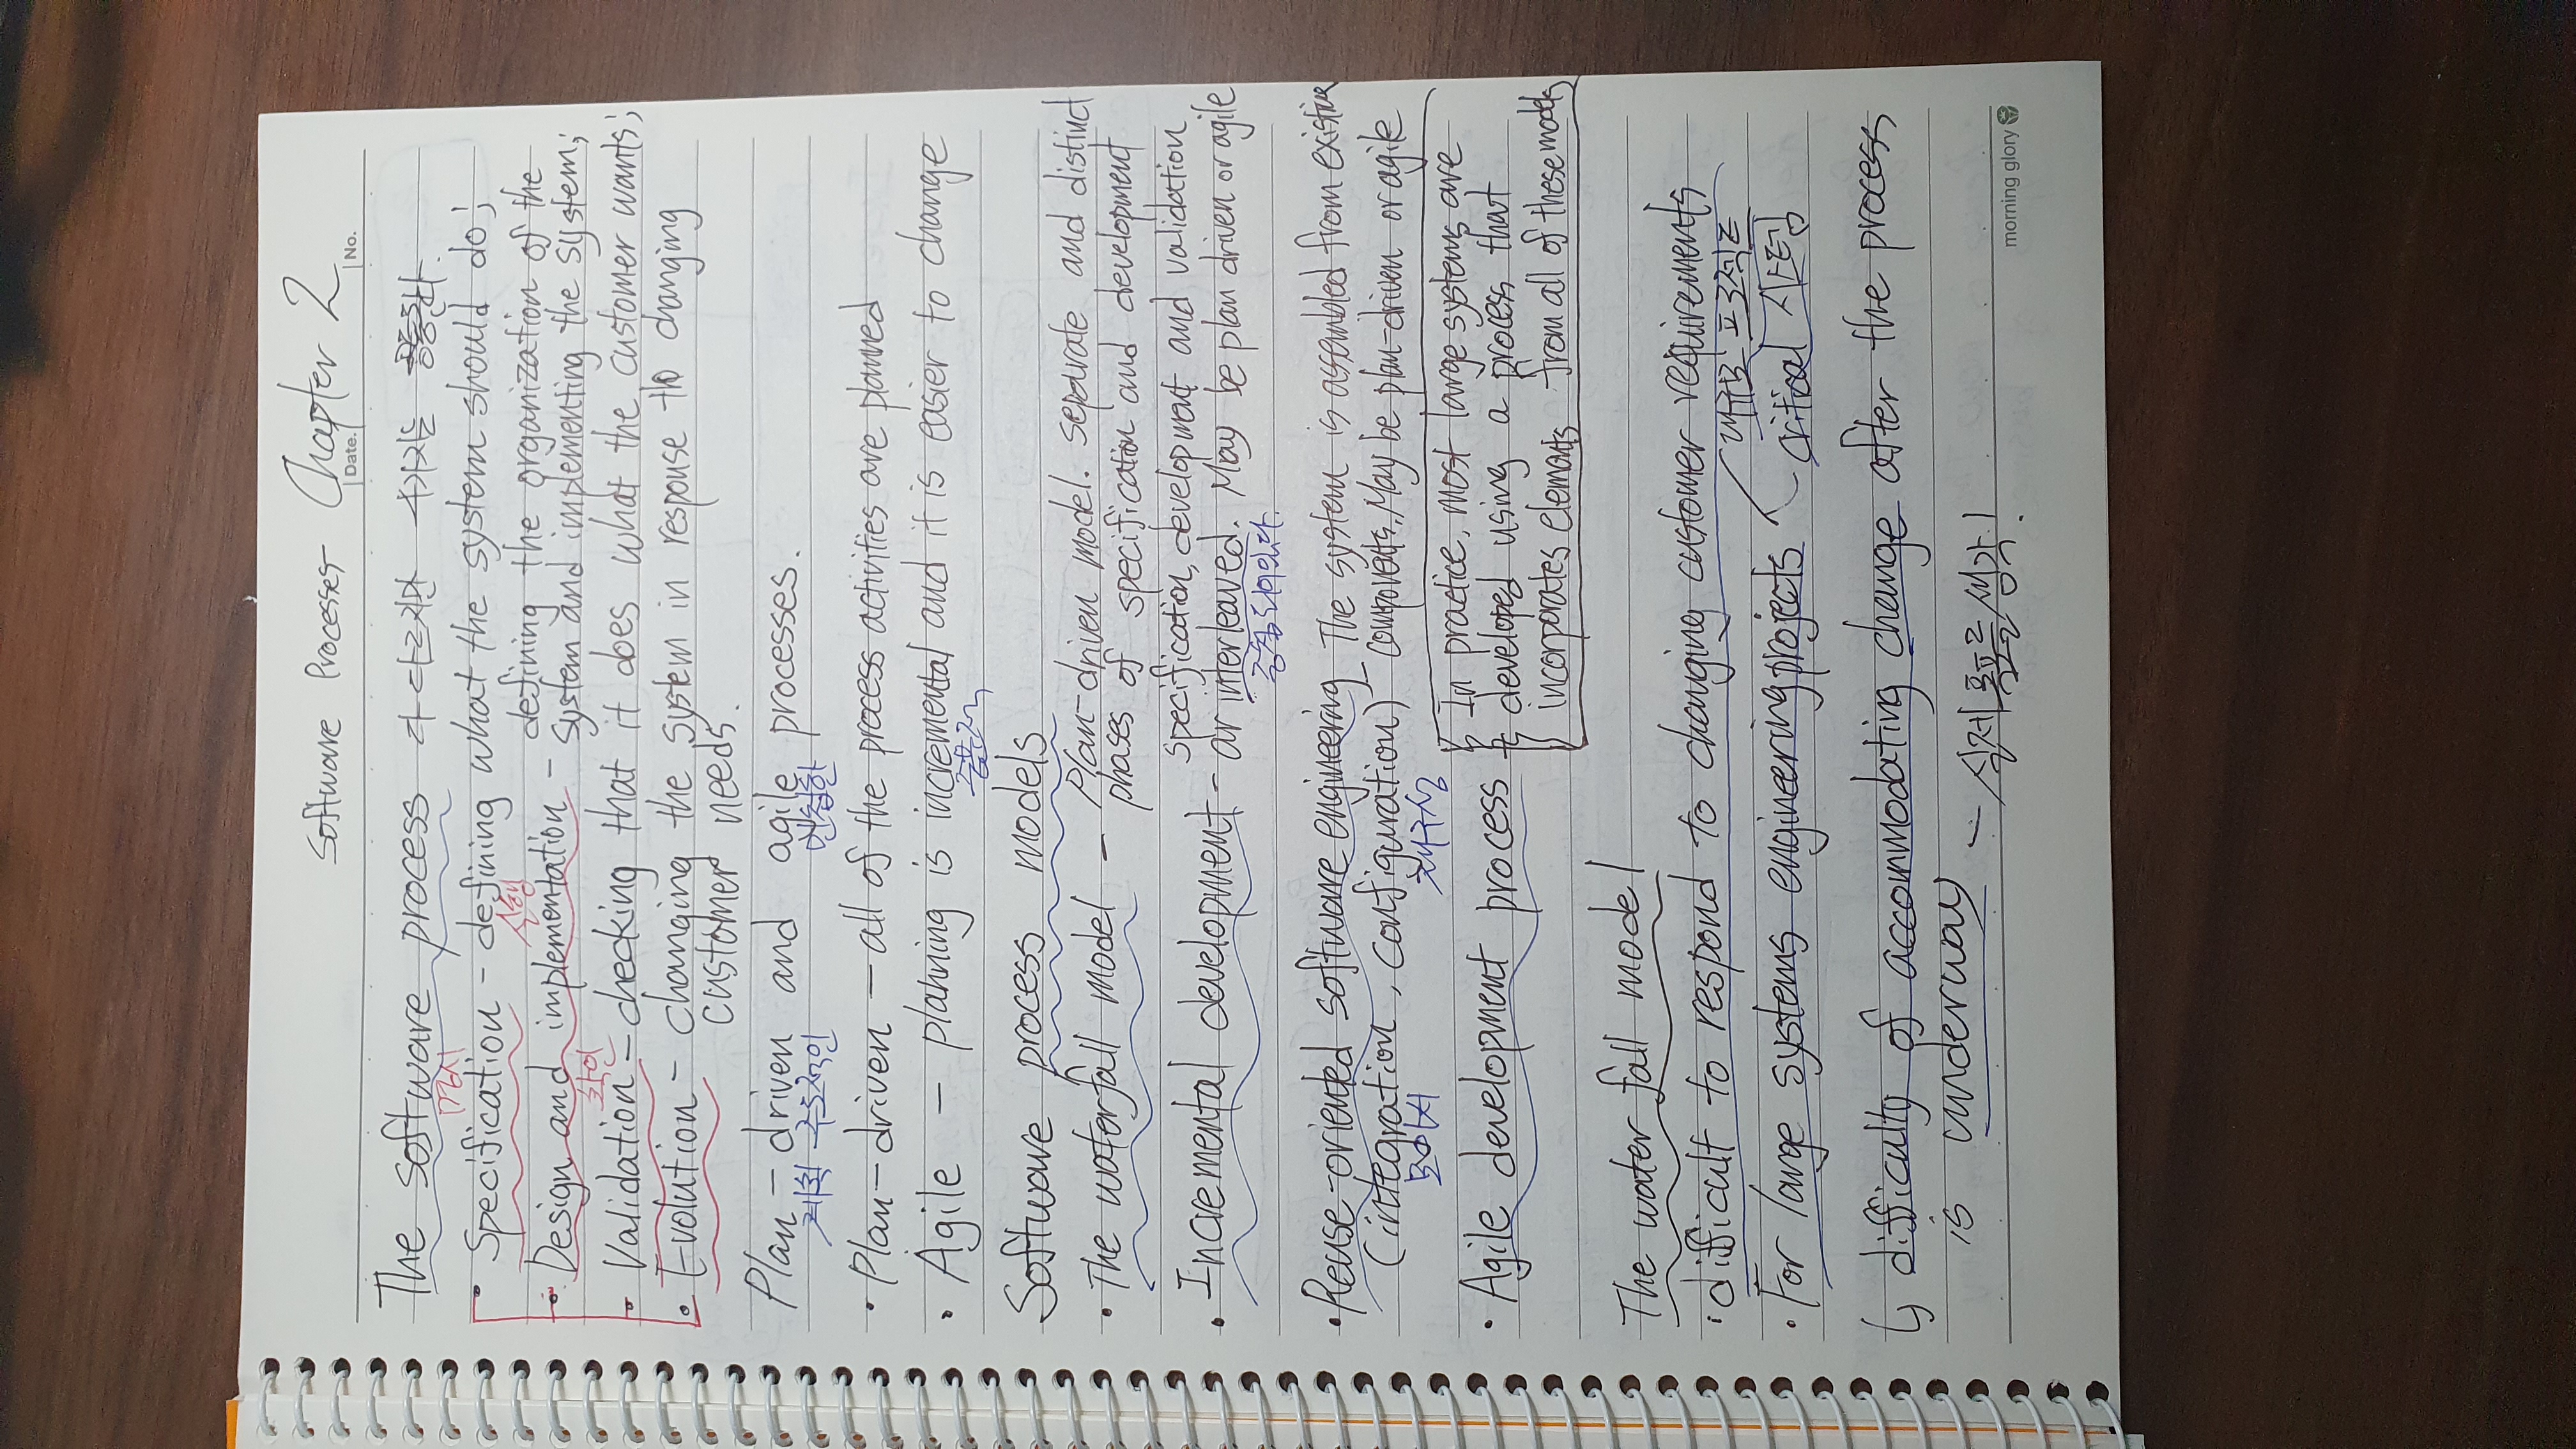 Software Processes Chapter 2
Date. No.
The software process 다 다르지만 4가지는 공통된다.
명시
Specification - defining what the system should do;
실행
Design and implementation - defining the organization of the
system and implementing the system;
확인
Validation - checking that it does what the customer wants;
Evolution - changing the system in response to changing
customer needs.
Plan-driven and agile processes.
계획 주도적인 민첩한
• Plan-driven - all of the process activities are planned
• Agile - planning is incremental and it is easier to change
Software process models
• The waterfall model - Plan-driven model. separate and distinct
phases of specification and development
specification, development and validation
• Incremental development - ar interleaved. May be plan driven or agile
중첩 되어있다.
• Reuse-oriented software engineering The system is assembled from existing
(integration, configuration) - components. May be plan-driven or agile
모아서 재구성
In practice, most large systems are
• Agile development process developed using a process that
incorporates elements from all of these models
The water fall model
• difficult to respond to changing customer requirements
대규모 프로젝트
• For large systems engineering projects critical 시스템
↳ difficulty of accommodating change after the process
is underway - 실제 폭포를 생각!
morning glory